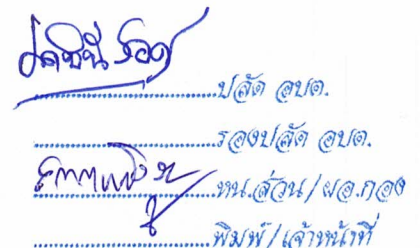 ..............................ปลัด อบต.
..............................รองปลัด อบต.
..............................หน.ส่วน/ผอ.กอง
..............................พิมพ์/เจ้าหน้าที่